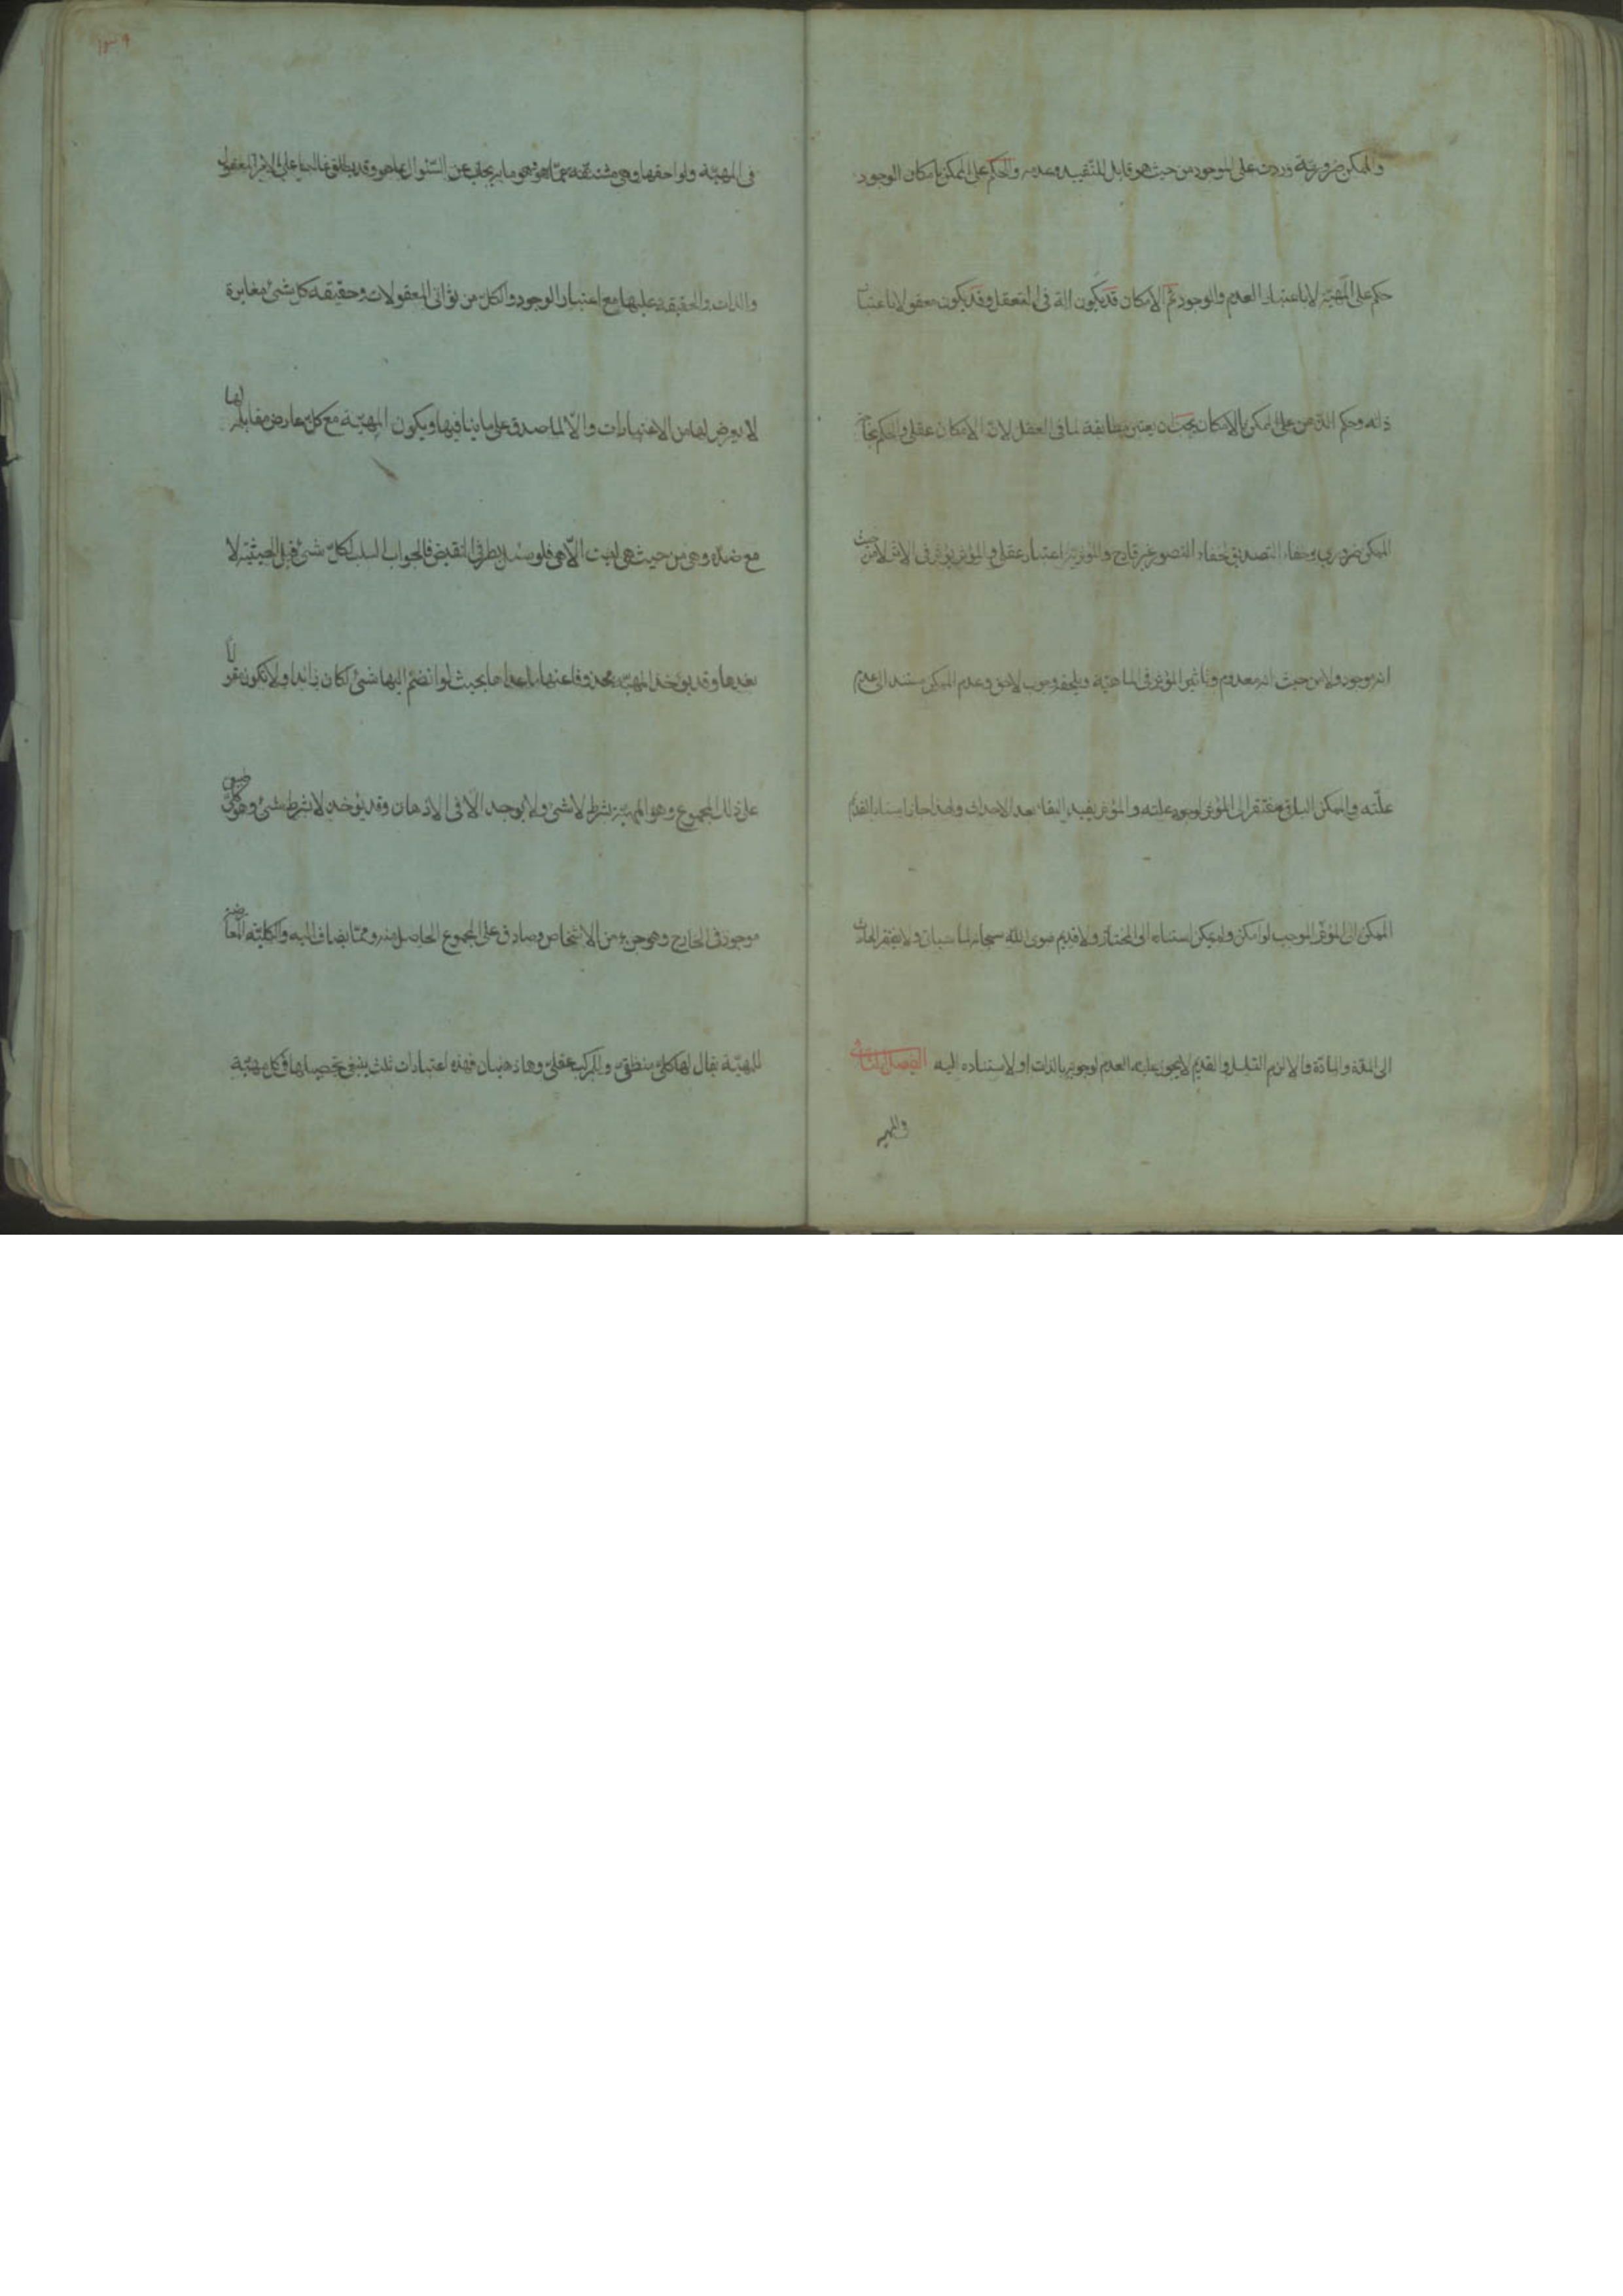 والممكن ضرورية وردت على الموجود من حيث هو قابل للتقييد وعدمه والحكم على الممكن بامكان الوجود
حكم على المهية لا باعتبار العدم والوجود ثم الامكان قد يكون الة فى التعقل وقد يكون معقولا باعتبار
ذاته وحكم الذهن على الممكن بالامكان يجب ان يعتبر مطابقة لما فى العقل لان الامكان عقلى والحكم بحاجة
الممكن ضرورى وخفاء التصديق لخفاء التصور غير قادح والمؤثرية اعتبار عقلى والمؤثر يؤثر فى الاثر لا من حيث
انه موجود ولا من حيث انه معدوم وتاثير المؤثر فى الماهية ويلحقه وجوب لاحق وعدم الممكن مستند الى عدم
علته والممكن الباقى مفتقر الى المؤثر لوجود علته والمؤثر يفيد البقاء بعد الاحداث ولهذا جاز استناد القديم
الممكن الى المؤثر الموجب لو امكن ولا يمكن استناده الى المختار ولا قديم سوى الله سبحانه لما سياتى ولا يفتقر الحادث
الى المدة والمادة والا لزم التسلسل والقديم لا يجوز عليه العدم لوجوبه بالذات او لاستناده اليه الفصل الثانى
فى المهية ولواحقها وهى مشتقة عما هو وهو ما به يجاب عن السؤال بما هو وقد يطلق غالبا على الامر المعقول
والذات والحقيقة عليها مع اعتبار الوجود والكل من ثوانى المعقولات وحقيقة كل شئ مغايرة
لا يعرض لها من الاعتبارات والا لما صدق على ما ينافيها ويكون المهية مع كل عارض مقابلة لها
مع ضده وهى من حيث هى ليست الا هى فلو سئل بطرفى النقيض فالجواب السلب لكل شئ قبل الحيثية لا
بعدها وقد يؤخذ المهية محذوفا عنها ما عداها بحيث لو انضم اليها شئ لكان زائدا ولا تكون مقولا
على ذلك المجموع وهو المهية بشرط لا شئ ولا يوجد الا فى الاذهان وقد يؤخذ لا بشرط شئ وهو كلى طبيعى
موجود فى الخارج وهو جزء من الاشخاص وصادق على المجموع الحاصل منه ومما يضاف اليه والكلية العارضة
للمهية يقال لها كلى منطقى والمركب عقلى وهما ذهنيان فهذه اعتبارات ثلث ينبغى تحصيلها فى كل مهية